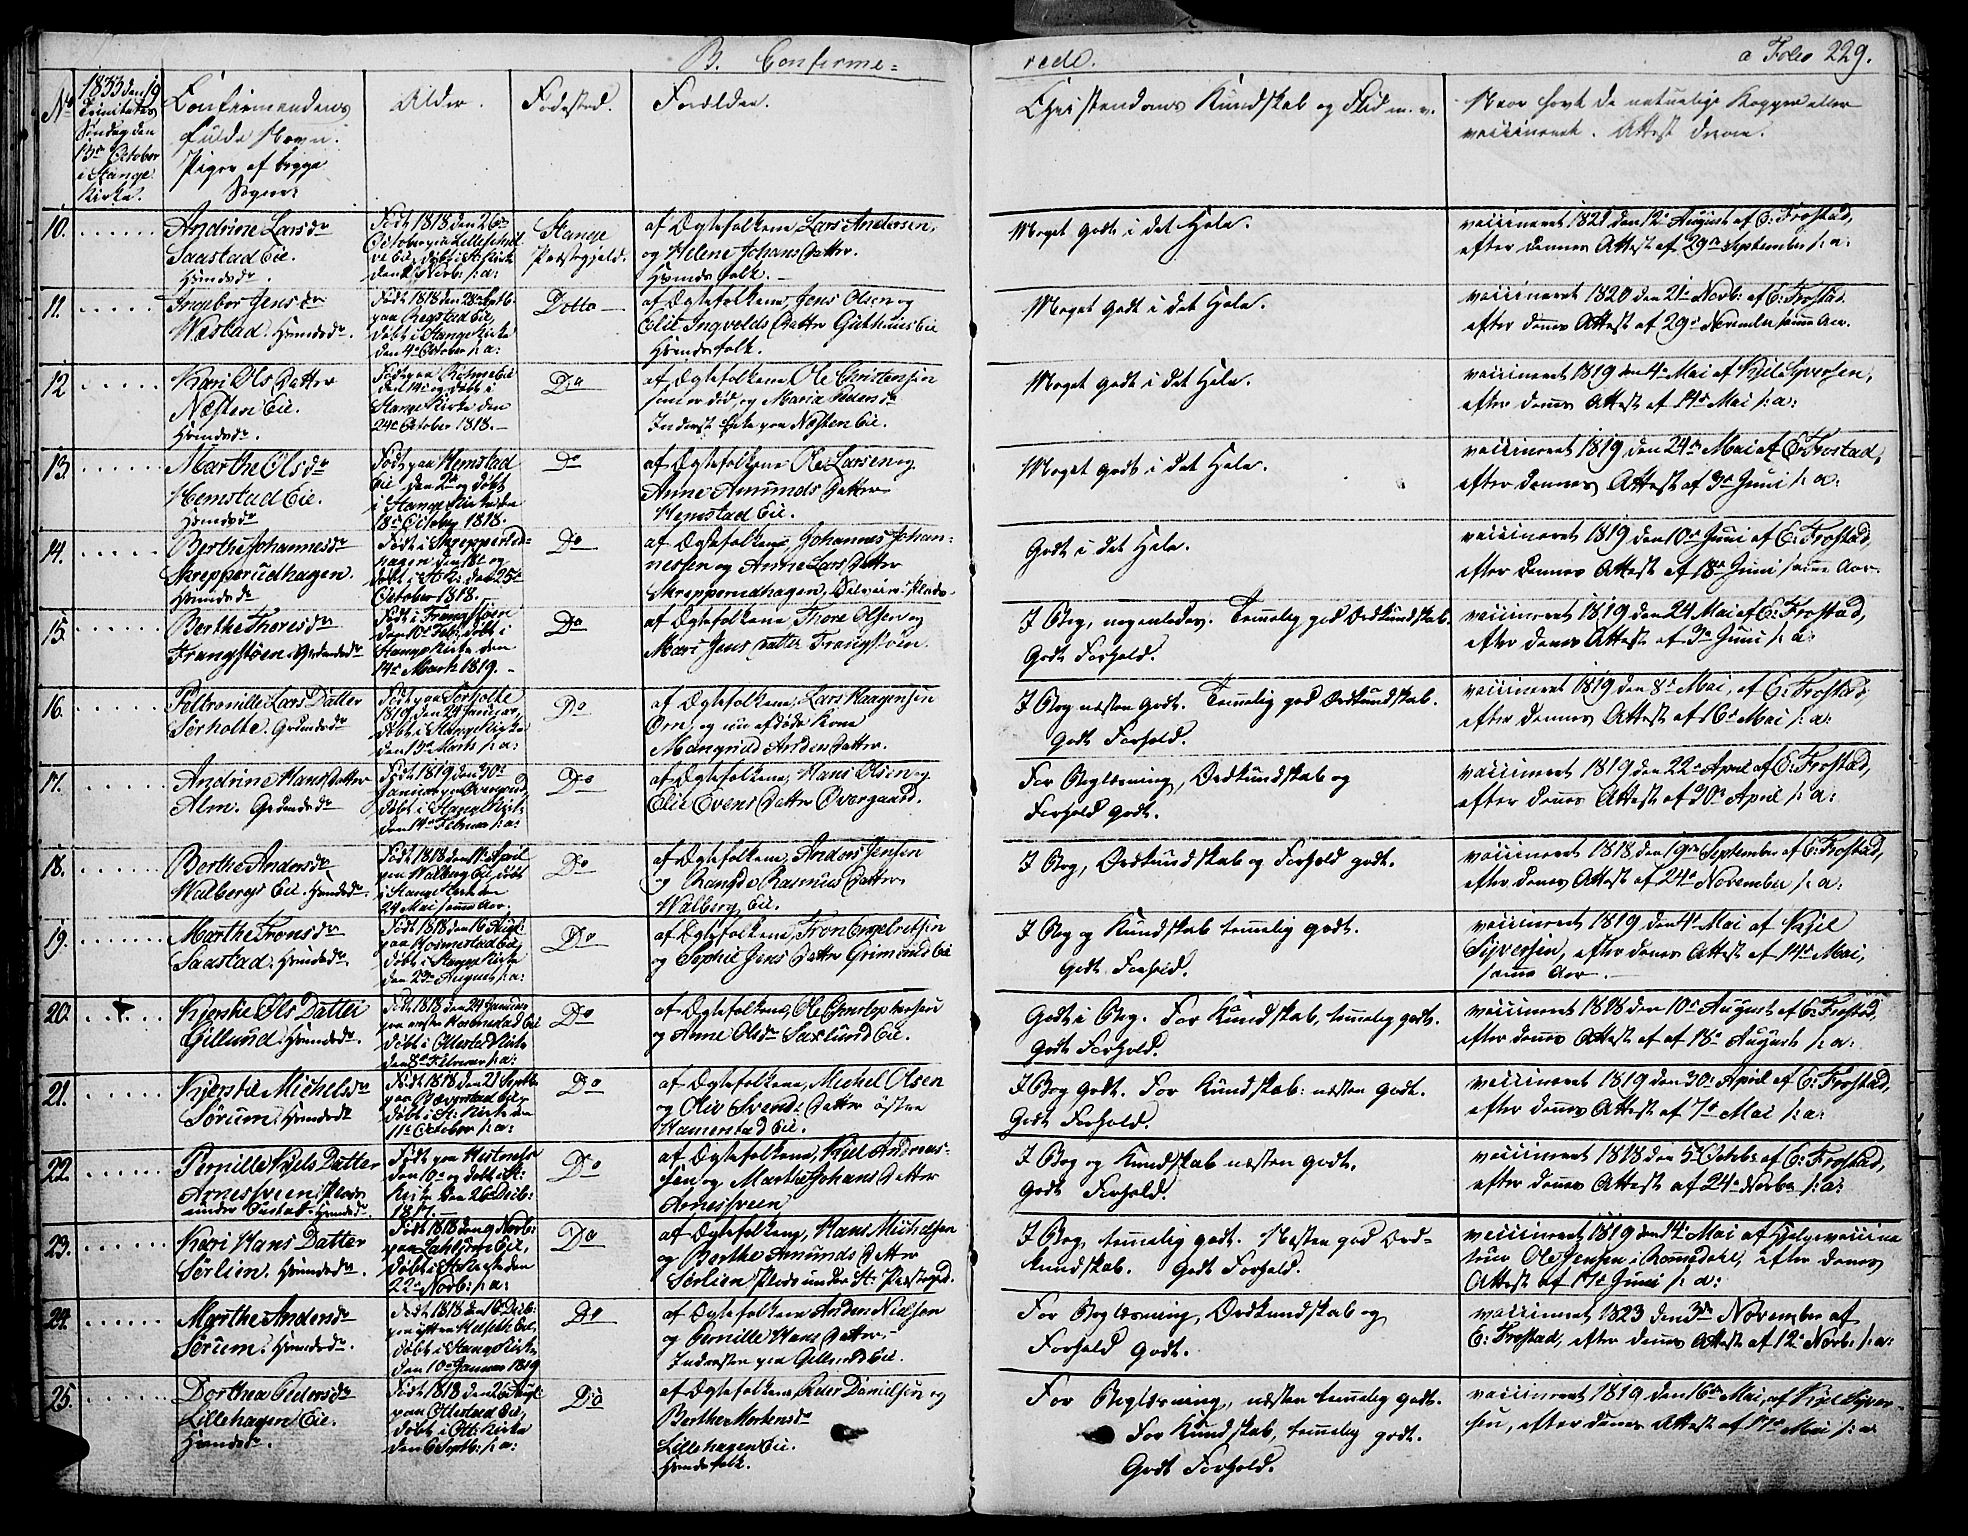 B. Confirme=
rede.
a Folio 229.
No
1833 den 19
Trinitatis
Søndag den
13de October
i Stange
Kirke.
Confirmandens
fulde Navn.
Piger af begge
Sogne:
Alder.
Fødested.
Forældre.
Christendoms Kundskab og Flid m. v.
Naar havt de naturlige Kopper eller
vaccineret. Attest derom.
10.
Andrine Larsdr
Saastad Eie.
Huusdr.
Født 1818 den 26de
October
Stange
Præstegjeld.
af Ægtefolkene, Lars Andersen,
og Helene Johans Datter.
Huusfolk.
Meget godt i det Hele.
vaccineret 1821 den 12te August af E: Frostad,
efter dennes Attest af 29de September s: a:
11.
Ingebor Jensdr
Wæstad. Huusdr.
Født 1818 den 28de Septb:
paa Regstad Eie,
døbt i Stange Kirke
den 4de October s: a:
Ditto
af Ægtefolkene, Jens Olsen og
Eli Ingvolds Datter Guthuus Eie
Huusfolk.
Meget godt i det Hele.
vaccineret 1820 den 21de Novb: af E: Frostad
efter dennes Attest af 29de November samme Aar.
12
Kari Ols Datter
Næsten Eie.
Huusdr.
døbt i
Stange Kirke den
24de October 1818.
Do
af Ægtefolkene Ole Christensen
som er død, og Maria Pedersdr
Inderst Enke paa Næsten Eie.
Meget godt i det Hele.
vaccineret 1819 den 4de Mai af Kjel Syversen,
efter dennes Attest af 14de Mai s: a:
13.
Marthe Olsdr
Hemstad Eie.
Huusdr
Født paa Hemstad
Eie, den 2de og døbt
i Stange Kirke den
18de October 1818.
Do
af Ægtefolkene Ole Larsen og
Anne Amunds Datter
Hemstad Eie.
Meget godt i det Hele.
vaccineret 1819 den 24de Mai af E: Frostad,
efter dennes Attest af 3de Juni s: a:
14.
Berthe Johannesdr
Skrepperudhagen.
Huusdr
Født i Skrepperud=
hagen den 18de og
døbt i St: K: den 25de
October 1818.
Do
af Ægtefolkene Johannes Johan=
nessen og Anne Lars Datter
Skrepperudhagen,
Godt i det Hele.
vaccineret 1819 den 10de Juni af E: Frostad,
efter dennes Attest af 18de Juni samme Aar.
15.
Berthe Thoresdr
Frangstøen. Gaardsdr
Født i Frangstøen
den 10de Feb: døbt i
Stange Kirke den
14de Marth 1819.
Do
af Ægtefolkene Thore Olsen og
Mari Jens Datter Frangstøen.
I Bog, nogenledes. Temmelig god Ordkundskab.
Godt Forhold.
vaccineret 1819 den 24 Mai af E: Frostad,
efter dennes Attest af 3de Juni s: a:
16.
Peltronille Lars Datter
Sørholte. Gaardsdr
Født paa Sørholte
1819, den 24 Januar,
døbt i Stange Kirke
den 14de Marth s: a:
Do
af Ægtefolkene, Lars Haagensen
Orn, og nu afdøde Kone
Mangnild Anders Datter.
I Bog næsten godt. Temmelig god Ordkundskab.
Godt Forhold.
vaccineret 1819 den 8de Mai, af E: Frostad,
efter dennes Attest af 16de Mai s: a:
17.
Andrine Hans Datter
Alm. Gaardsdr
Født 1819 den 30de
Januar paa Overgaard,
døbt i Stange Kirke
den 14de Februar s: a:
Do
af Ægtefolkene, Hans Olsen og
Elie Evens Datter Overgaard.
For Boglæsning, Ordkundskab og
Forhold godt.
vaccineret 1819 den 22de April af E: Frostad,
efter dennes Attest af 30de April s: a:
18.
Berthe Andersdr
Walbergs Eie. Huusdr.
Født 1818 den April
paa Walberg Eie, døbt
i Stange Kirke
24 Mai samme Aar.
Do
af Ægtefolkene, Anders Jensen
og Rangde Rasmus Datter
Walberg Eie.
I Bog, Ordkundskab og Forhold godt.
vaccineret 1818 den 19de September af E: Frostad,
efter dennes Attest af 24de November s: a:
19.
Marthe Fronsdr
Saastad. Huusdr.
Født 1818 den 16 Aug:
paa Hosmestad Eie,
døbt i Stange Kirke
den 23de August s: a:
Do
af Ægtefolkene, Fron Engebretsen
og Sophie Jens Datter Grimerud Eie
I Bog og Kundskab temmelig godt.
Godt Forhold.
vaccineret 1819 den 4de Mai af Kjel
Syversen, efter dennes Attest af 14de Mai,
samme Aar.
20.
Kjerstie Ols Datter
Gillund. Huusdr.
Født 1818 den 24 Januar
døbt i Ottestad Kirke
den 8de Februar s: a:
Do
og Anne Olsdr Saxlund Eie.
Godt i Bog. For Kundskab, temmelig godt.
Godt Forhold.
vaccineret 1818 den 10de August af E: Frostad,
efter dennes Attest af 18de August s: a:
21.
Kjerstie Michelsdr
Sørum. Huusdr
Født 1818 den 21 Septb:
døbt i St: Kirke den
11te October s: a:
Do
af Ægtefolkene, Michel Olsen
og Olia Svends Datter østre
Hamerstad Eie.
I Bog godt. For Kundskab: næsten godt.
Godt Forhold.
vaccineret 1819 den 30te April af E: Frostad,
efter dennes Attest af 7de Mai s: a:
22.
Pernille Kjels Datter
Arnessveen, Plads
Huusdr.
den 10de og døbt i St:
Kirke den 26de Decb:
1817.
Do
af Ægtefolkene, Kjel Andreas=
sen og Marthe Johans Datter
Arnessveen
I Bog og Kundskab næsten godt.
Godt Forhold.
vaccineret 1818 den 5te Octobr: af E: Frostad,
efter dennes Attest af 24de Novbr s: a:
23.
Kari Hans Datter
Sørlien. Huusdr.
Født 1818 den 9 Novb:
døbt i St: Kirke den
22de Novb: s: a:
Do
af Ægtefolkene, Hans Michelsen
og Berthe Amunds Datter
Sørlien Plads under St: Præstegd.
I Bog, temmelig godt. Næsten god Ord=
kundskab. Godt Forhold.
vaccineret 1819 den 14de Mai af Hjelpevaccina
teur Ole Jensen i Romedahl, efter dennes
Attest af 17de Juni s: a:
24.
Marthe Andersdr
Sørum. Huusdr.
Født 1818 den 16 Decb:
døbt i Stange Kirke
den 10de Januar 1819
Do
af Ægtefolkene Anders Nielsen
og Pernille Hans Datter,
Inderster paa Gillund Eie.
For Boglæsning, Ordkundskab og
Forhold godt.
vaccineret 1823 den 3de November af
E: Frostad, efter dennes Attest af 12te Novb: s: a:
25.
Dorthea Pedersdr
Lillehagen Eie.
Huusdr.
Født 1818 den 26 Aug:
paa Ottestad Eie,
døbt i Ott: Kirke
den 6 Septb: s: a:
Do
af Ægtefolkene, Peder Danielsen og
Berthe Mortensdr
Lillehagen Eie.
Huusfolk.
For Boglæsning, næsten temmelig godt.
For Kundskab, temmelig godt.
Godt Forhold.
vaccineret 1819 den 16de Mai, af Kjel Syver=
sen, efter dennes Attest af 17de Mai s: a: